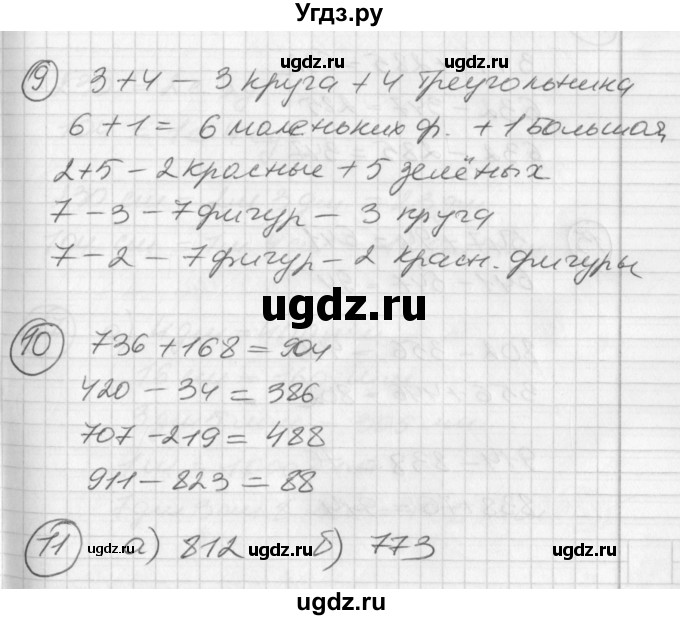 Угдз.ру
ugdz.ru ugdz.ru ugdz.ru
9 3+4 – 3 круга + 4 треугольника
6+1 = 6 маленьких ф. + 1 большая
2+5 – 2 красные + 5 зелёных
ugdz.ru ugdz.ru ugdz.ru
7 – 3 – 7 фигур – 3 круга
7 – 2 – 7 фигур – 2 красн. фигуры
ugdz.ru
10 736 + 168 = 904
ugdz.ru ugdz.ru ugdz.ru
420 – 34 = 386
707 – 219 = 488
ugdz.ru
911 – 823 = 88
11 ugdz.ru а) 812 ugdz.ru б) 773 ugdz.ru
ugdz.ru